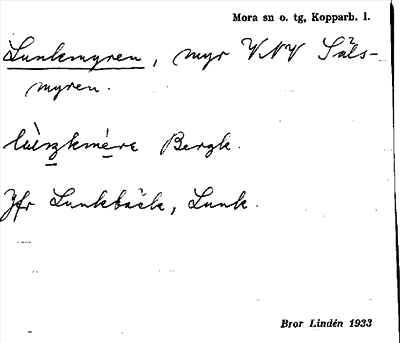 Mora sn o. tg, Kopparb. l.
Lunkmyren, myr VNV Säls-
myren.
Bergk.
Jfr Lunkbäck, Lunk.
Bror Lindén 1933